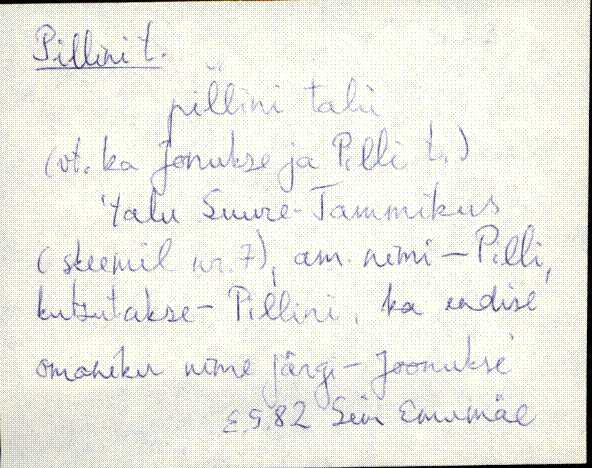 Pillini t.
pillini talu
(vt. ka Jonukse ja Pilli t.)
'talu Suure-Tammikus
(skeemil nr. 7), am. nimi – Pilli,
kutsutakse – Pillini, ka endise
omaniku nime järgi – Joonukse
82 Emumäe